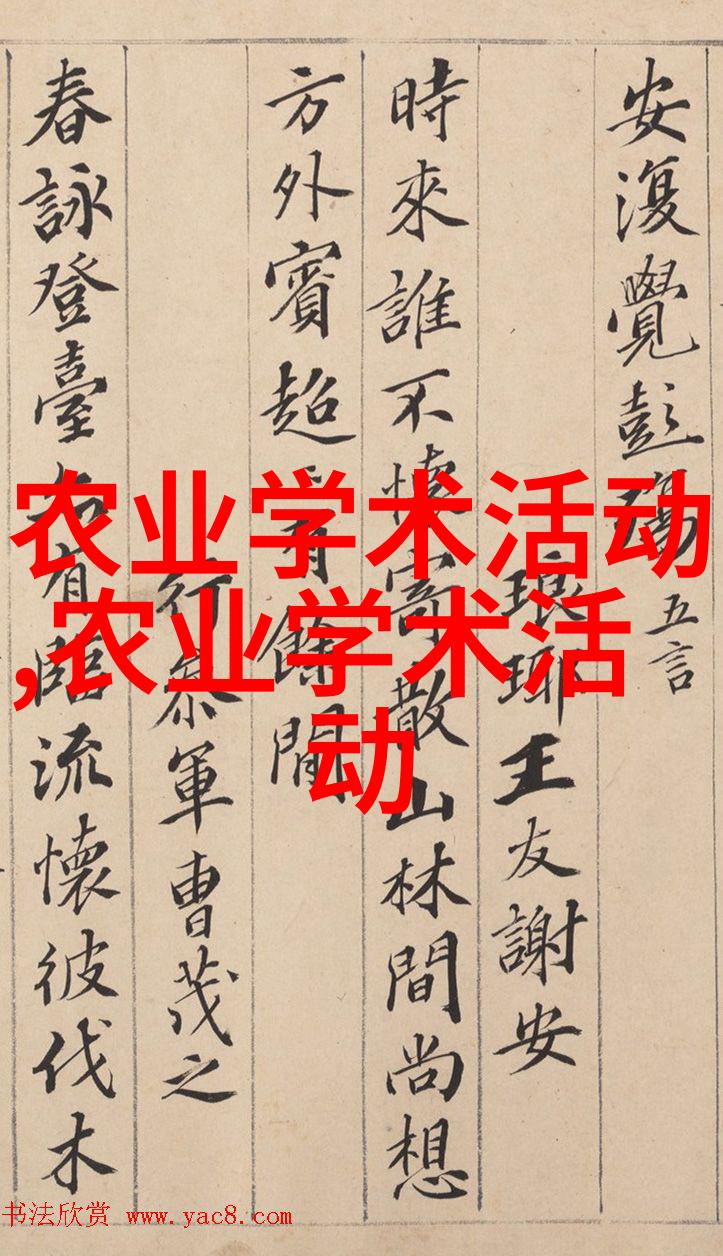 安復覺彭殤 五言
琅琊王友謝安
時來誰不懷寄散山林間尚想
方外賓超有餘間
行參軍曹茂之
春詠登臺亦有臨流懷彼伐木
农业学术活动
,农业学术活
动
书法欣赏 www.yac8.com